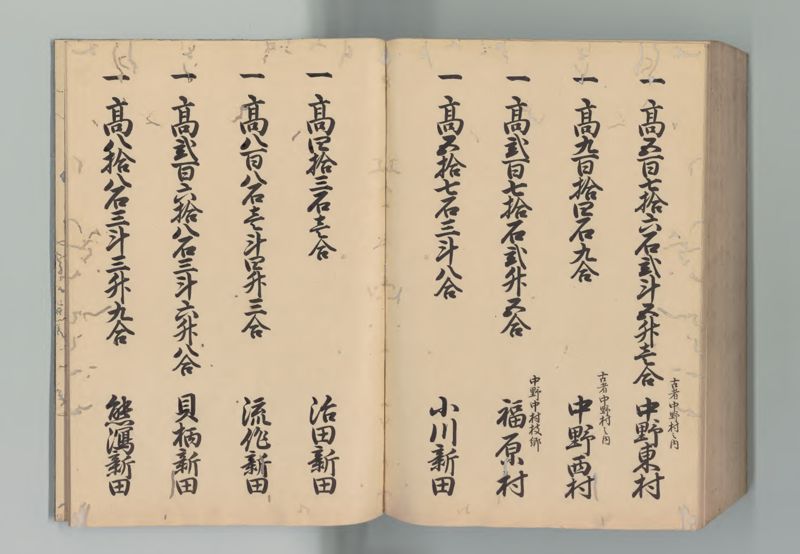 一 高五百七拾六石弐斗五升壱合
古者中野村之内
中野東村
一 高九百拾四石九合
古者中野村之内
中野西村
一 高弐百七拾石弐升五合
中野中村枝郷
福原村
一 高五拾七石三斗八合
小川新田
一 高四拾三石壱合
治田新田
一 高八百八石壱斗四升三合
流作新田
一 高弐百六拾八石三斗六升八合
貝柄新田
一 高八拾八石三斗三升九合
熊潟新田